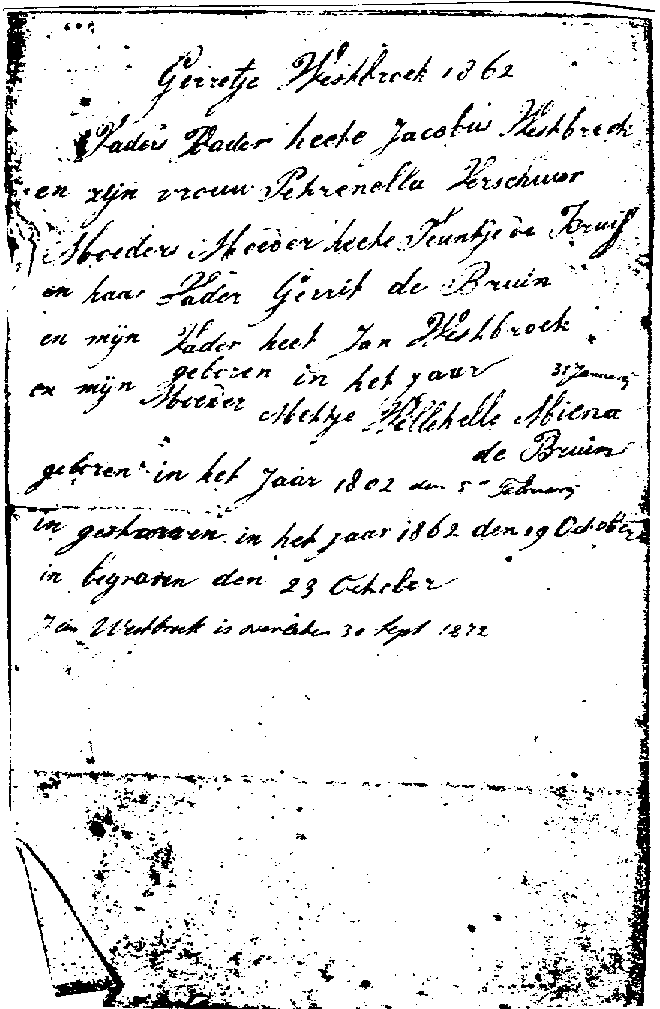 Gerretje Westbroek 1862
Vaders Vader heete Jacobus Westbroek
en zijn vrouw Petrenella Verschuor
Moeders Moeder heete Teuntje de Kruijf
en haar Vader Gerrit de Bruin
en mijn Vader heet Jan Westbroek
geboren in het jaar 31 Januarij
en mijn Moeder Metije Willehelle Miena
de Bruin
geboren in het Jaar 1802 den 5 Februarij
in gestorven in het jaar 1862 den 19 October
in begraven den 23 October
Jan Westbroek is overleden 30 Sept 1872